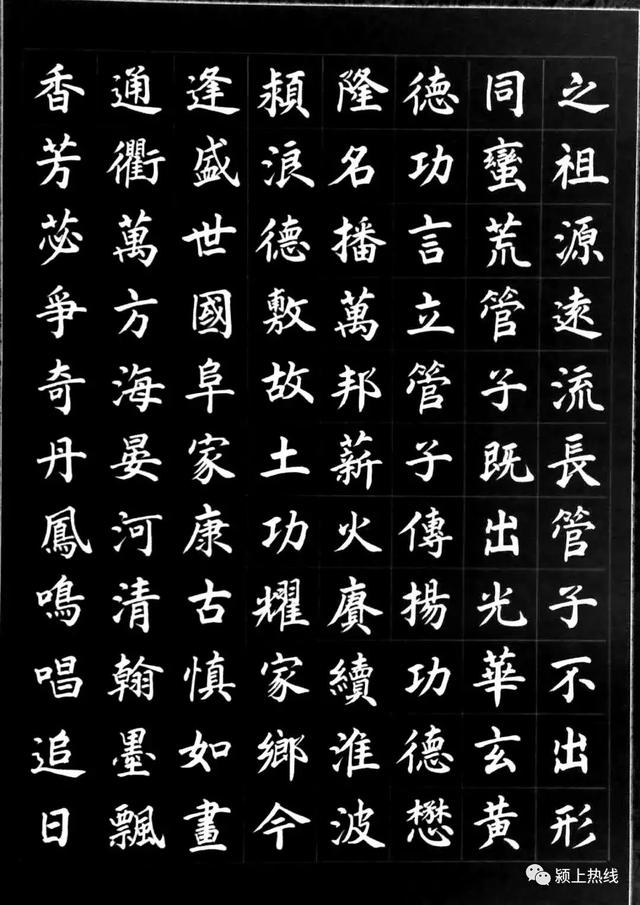 之祖源遠流長管子不出形
同蠻荒管子既出光華玄黃
德功言立管子傳揚功德懋
隆名播萬邦薪火賡續淮波
潁浪德敷故土功耀家鄉今
逢盛世國阜家康古慎如畫
通衢萬方海晏河清翰墨飄
香芳苾爭奇丹鳳鳴唱追日
颍上热线